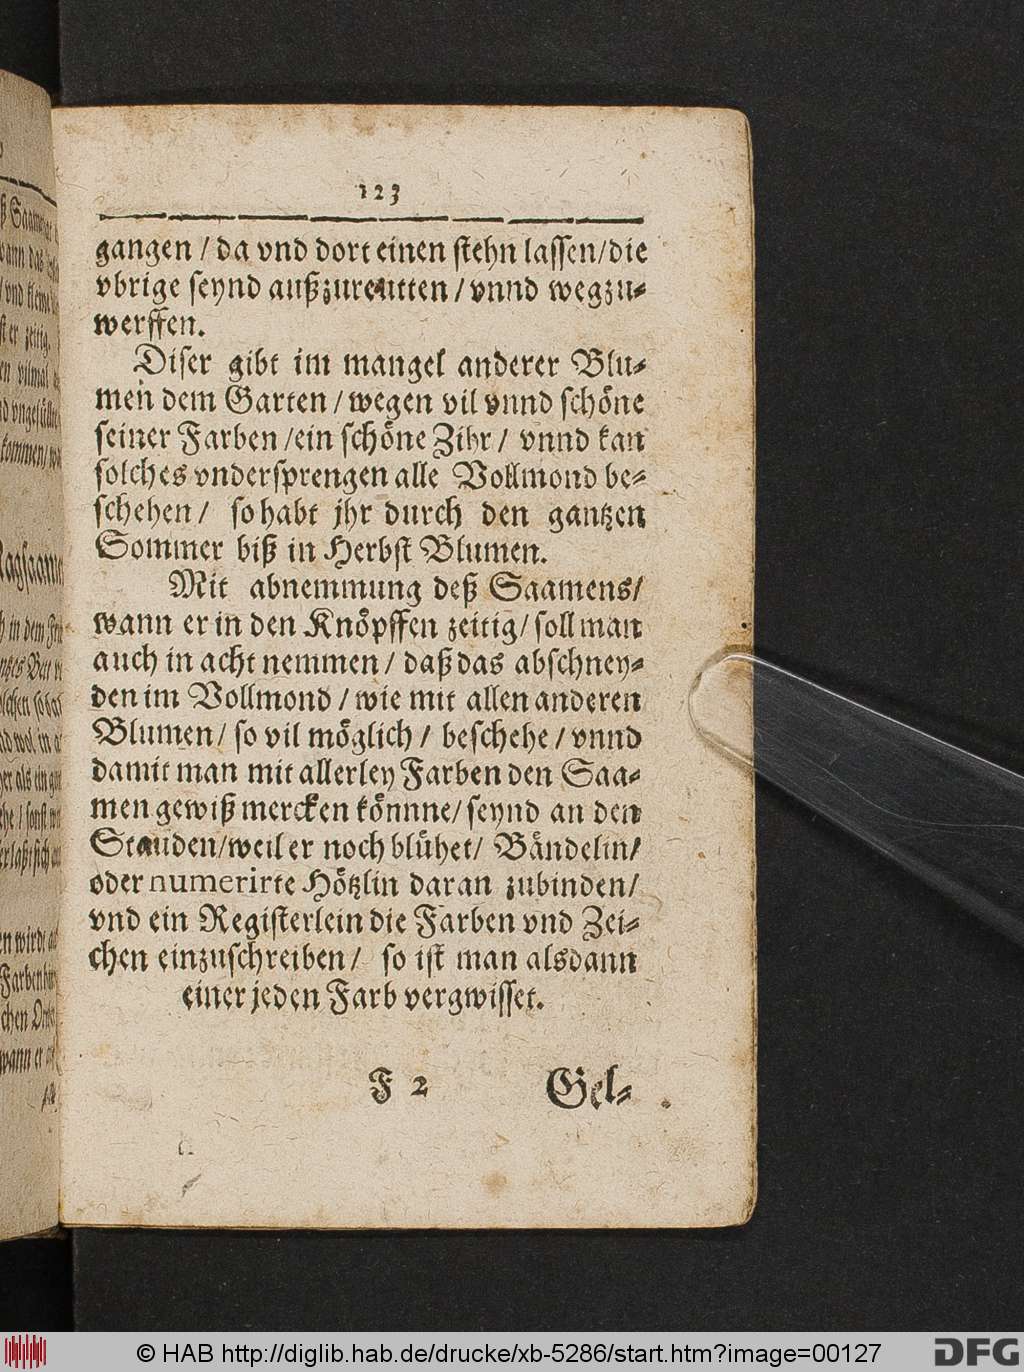 123
gangen / da vnd dort einen stehn lassen / die
vbrige seynd außzureutten / vnnd wegzu-
werffen.
Diser gibt im mangel anderer Blu-
men dem Garten / wegen vil vnnd schöne
seiner Farben / ein schöne Zihr / vnnd kan
solches vndersprengen alle Vollmond be-
schehen / so habt jhr durch den gantzen
Sommer biß in Herbst Blumen.
Mit abnemmung deß Saamens /
wann er in den Knöpffen zeitig / soll man
auch in acht nemmen / daß das abschney-
den im Vollmond / wie mit allen anderen
Blumen / so vil möglich / beschehe / vnnd
damit man mit allerley Farben den Saa-
men gewiß mercken könnne / seynd an den
Stauden / weil er noch blühet / Bändelin /
oder numerirte Hötzlin daran zubinden /
vnd ein Registerlein die Farben vnd Zei-
chen einzuschreiben / so ist man alsdann
einer jeden Farb vergwisset.
F 2 Gel-
© HAB http://diglib.hab.de/drucke/xb-5286/start.htm?image=00127
DFG